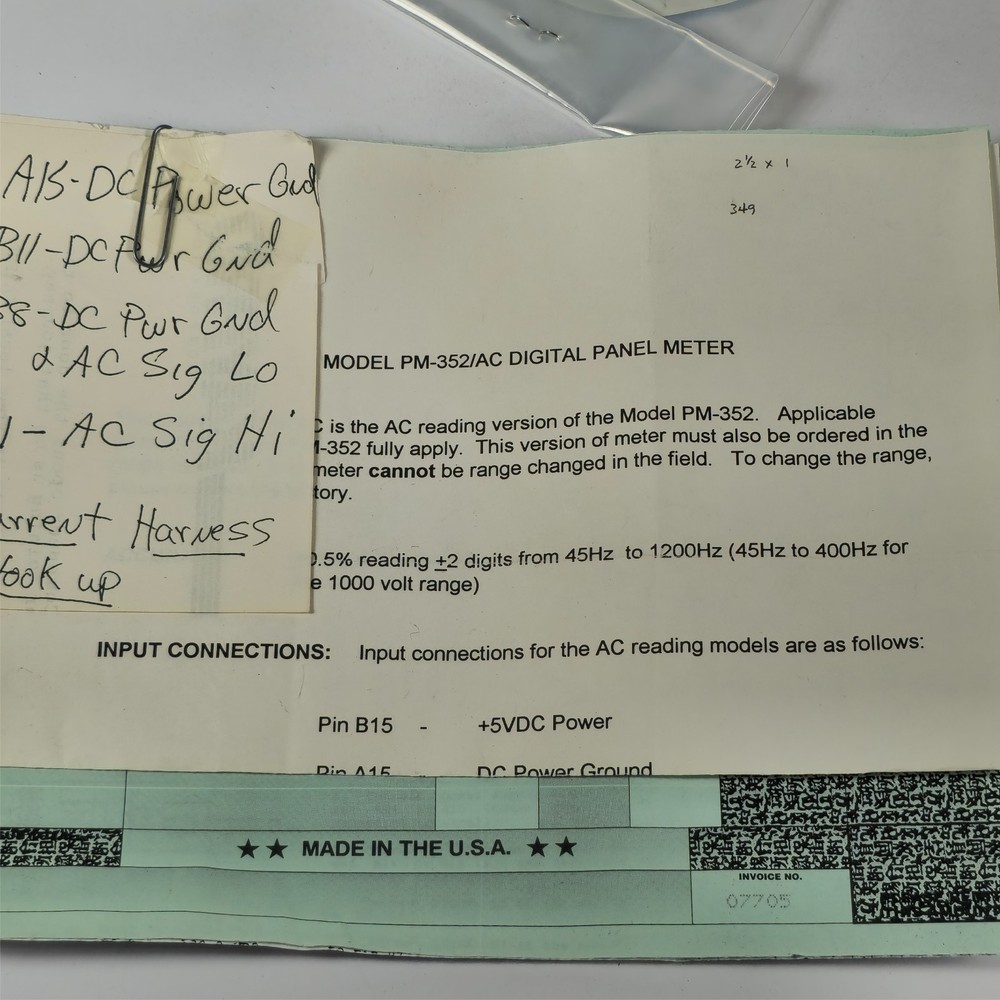 A15-DC Power Gnd
B11-DC Pwr Gnd
B8-DC Pwr Gnd
& AC Sig Lo
1- AC Sig Hi
urrent Harness
Hook up
2½ x 1
349
MODEL PM-352/AC DIGITAL PANEL METER
C is the AC reading version of the Model PM-352. Applicable
-352 fully apply. This version of meter must also be ordered in the
meter cannot be range changed in the field. To change the range,
tory.
0.5% reading ±2 digits from 45Hz to 1200Hz (45Hz to 400Hz for
e 1000 volt range)
INPUT CONNECTIONS: Input connections for the AC reading models are as follows:
Pin B15 - +5VDC Power
Pin A15 DC Power Ground
★★ MADE IN THE U.S.A. ★★
INVOICE NO.
07705